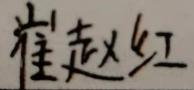 崔赵红